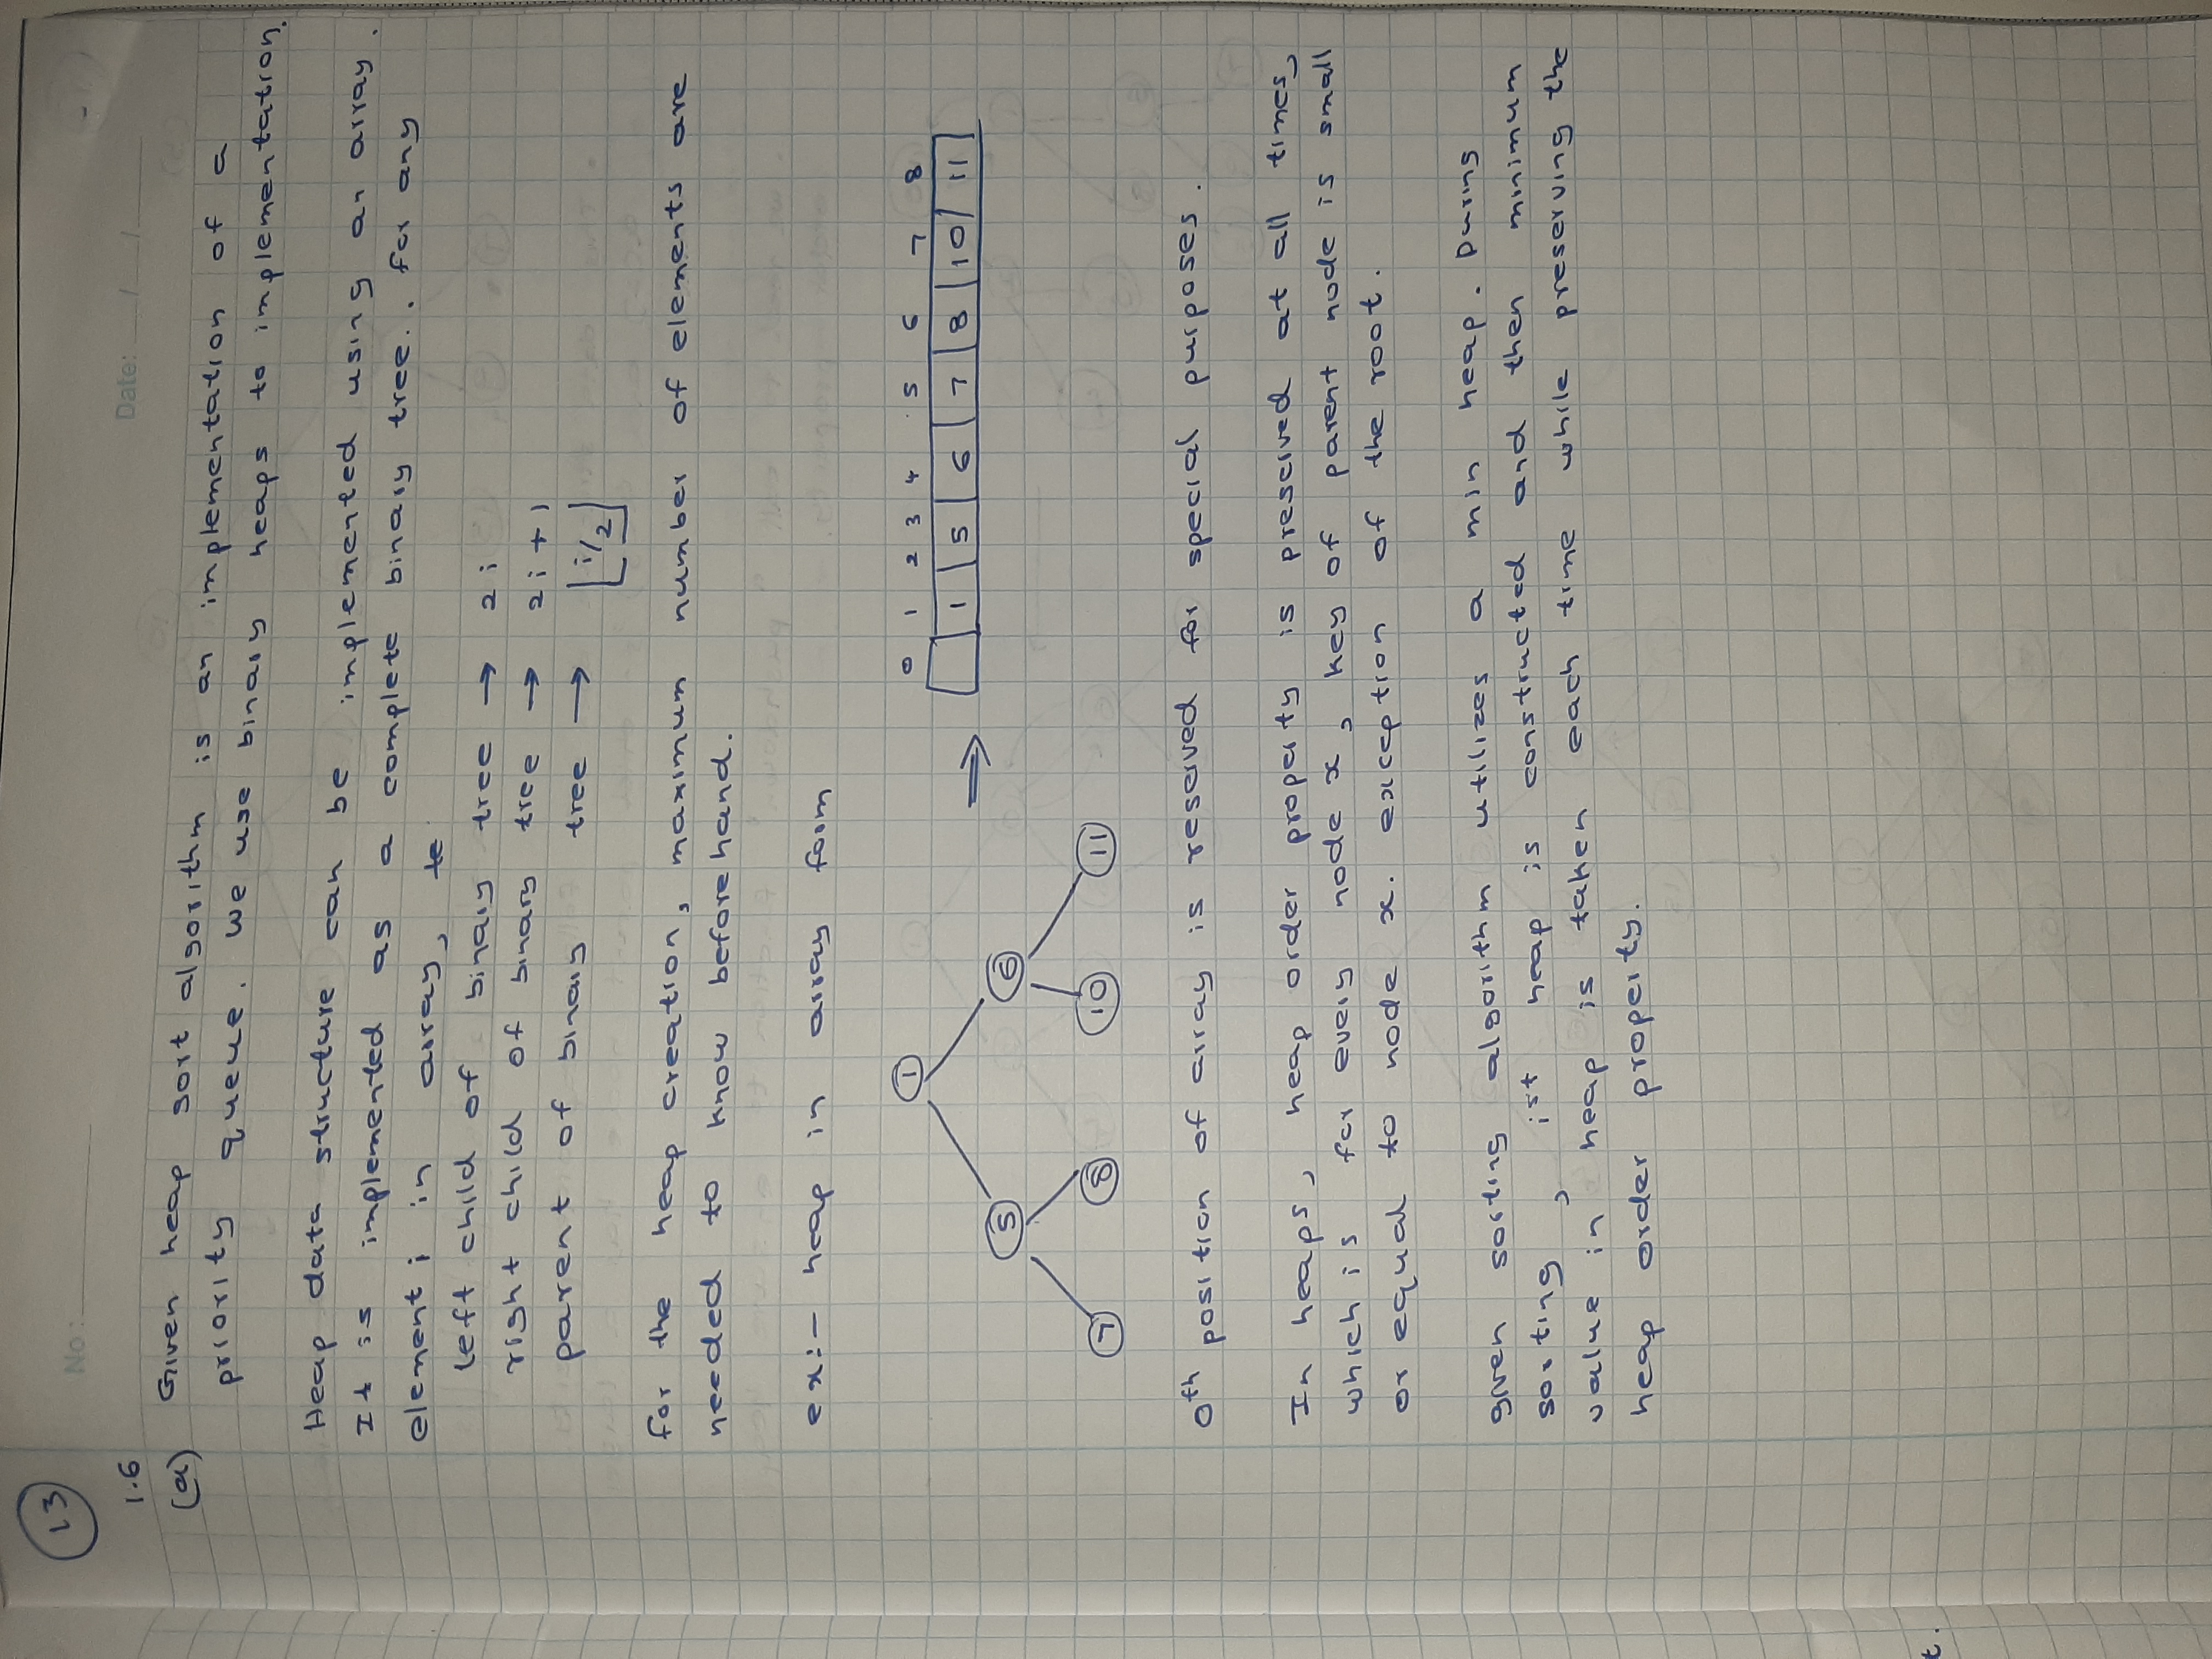 13
No :
Date: / /
1.6
(a) Given heap sort algorithm is an implementation of a
priority queue. We use binary heaps to implementation.
Heap data structure can be implemented using an array.
It is implemented as a complete binary tree.. for any
element i in array,
left child of binary tree → 2i
right child of binary tree → 2i + 1
parent of binary tree → ⌊i/2⌋
for the heap creation, maximum number of elements are
needed to know beforehand.
ex:- heap in array form
0 1 2 3 4 5 6 7 8
1 ⇒ 1 5 6 7 8 10 11
5 6
7 8 10 11
0th position of array is reserved for special purposes.
In heaps, heap order property is preserved at all times,
which is for every node x, key of parent node is small
or equal to node x. exception of the root.
given sorting algorithm utilizes a min heap. During
sorting, 1st heap is constructed and then minimum
value in heap is taken each time while preserving the
heap order property.
t.